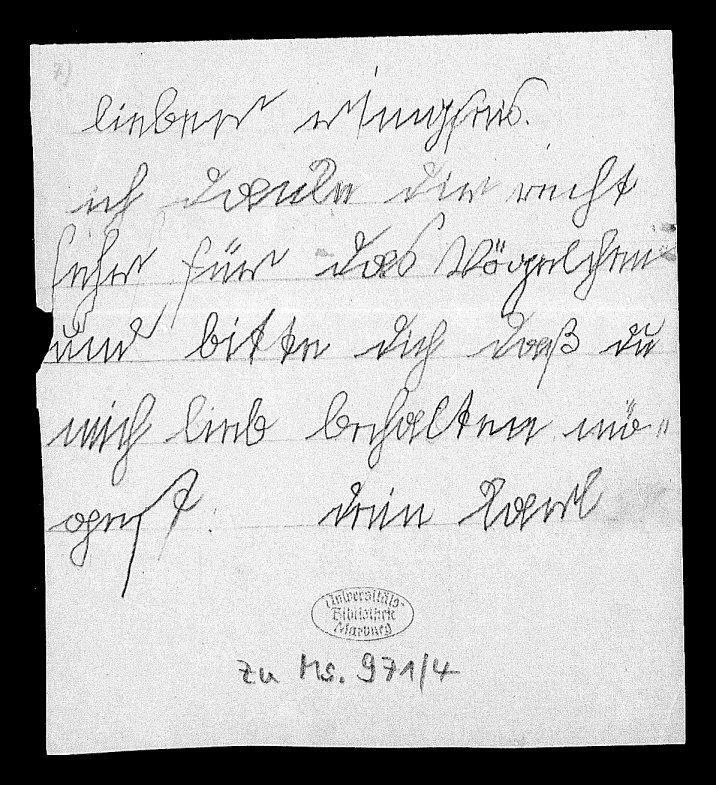 lieber ringseis.
ich danke dir recht
sehr für das Vögelchen
und bitte dich daß du
mich lieb behalten mö=
gest. dein karl
Universitäts-
Bibliothek
Marburg
zu Ms. 971/4